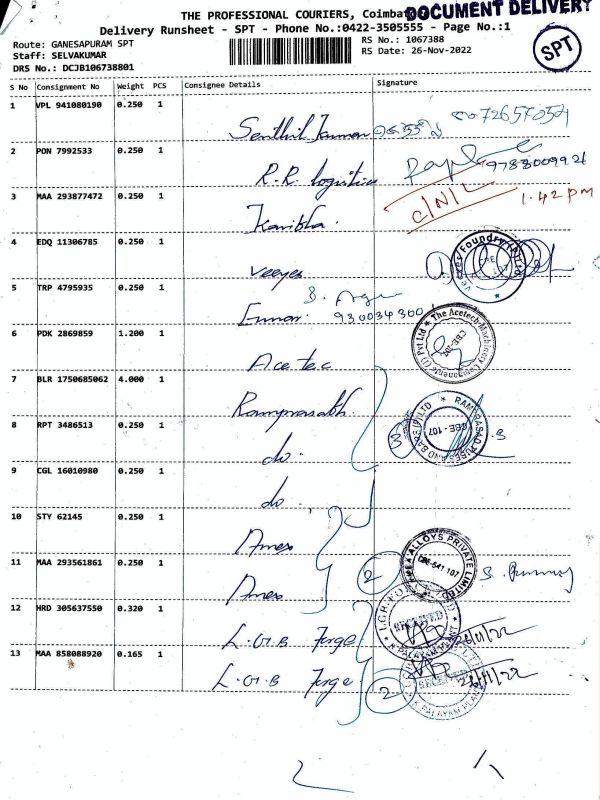 THE PROFESSIONAL COURIERS, Coimbato
DOCUMENT DELIVERY
Delivery Runsheet - SPT - Phone No.:0422-3505555 - Page No.:1
Route: GANESAPURAM SPT
RS No.: 1067388
Staff: SELVAKUMAR
RS Date: 26-Nov-2022
DRS No.: DCJB106738801
SPT
S No Consignment No Weight PCS Consignee Details Signature
1 VPL 941080190 0.250 1
Senthil Kumar
2 PON 7992533 0.250 1
R.R. logistics 9788009921
3 MAA 293877472 0.250 1
Kanibha. C/N/L 1.42 pm
4 EDQ 11306785 0.250 1
Veeyes
5 TRP 4795935 0.250 1
6 PDK 2869859 1.200 1
Ace tec
The Acetech Machinery Components (I) Pvt Ltd
CBE-107
7 BLR 1750685062 4.000 1
Ramprasath
8 RPT 3486513 0.250 1
do.
RAMPRASAD TUBES AND BARS (P) LTD
CBE-107
3
9 CGL 16010980 0.250 1
do.
10 STY 62145 0.250 1
Amex
11 MAA 293561861 0.250 1
Amex
2
ALLOYS PRIVATE LIMITED
CBE-641 107
12 HRD 305637550 0.320 1
L.G.B Forge
RECEIVED
K PALAYAM PLANT
26/11/22
13 MAA 858088920 0.165 1
L.G.B Forge
2
RECEIVED
K PALAYAM PLANT
26/11/22